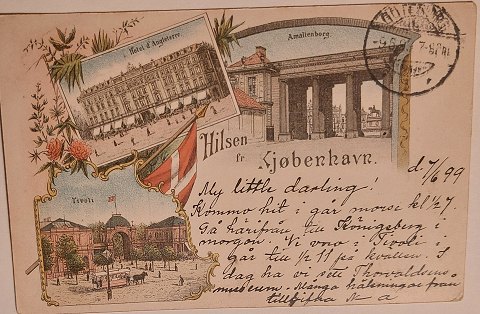 Hotel d'Angleterre.
Amalienborg.
Hilsen
fr. Kjøbenhavn.
Tivoli
d. 7/6 99
My little darling!
Kommo hit i går morse kl ½ 7.
Gå härifrån till Königsberg i
morgon. Vi voro i Tivoli i
går till ½ 11 på kvällen. I
dag ha vi sett Thorvaldsens
museum. Många hälsningar från